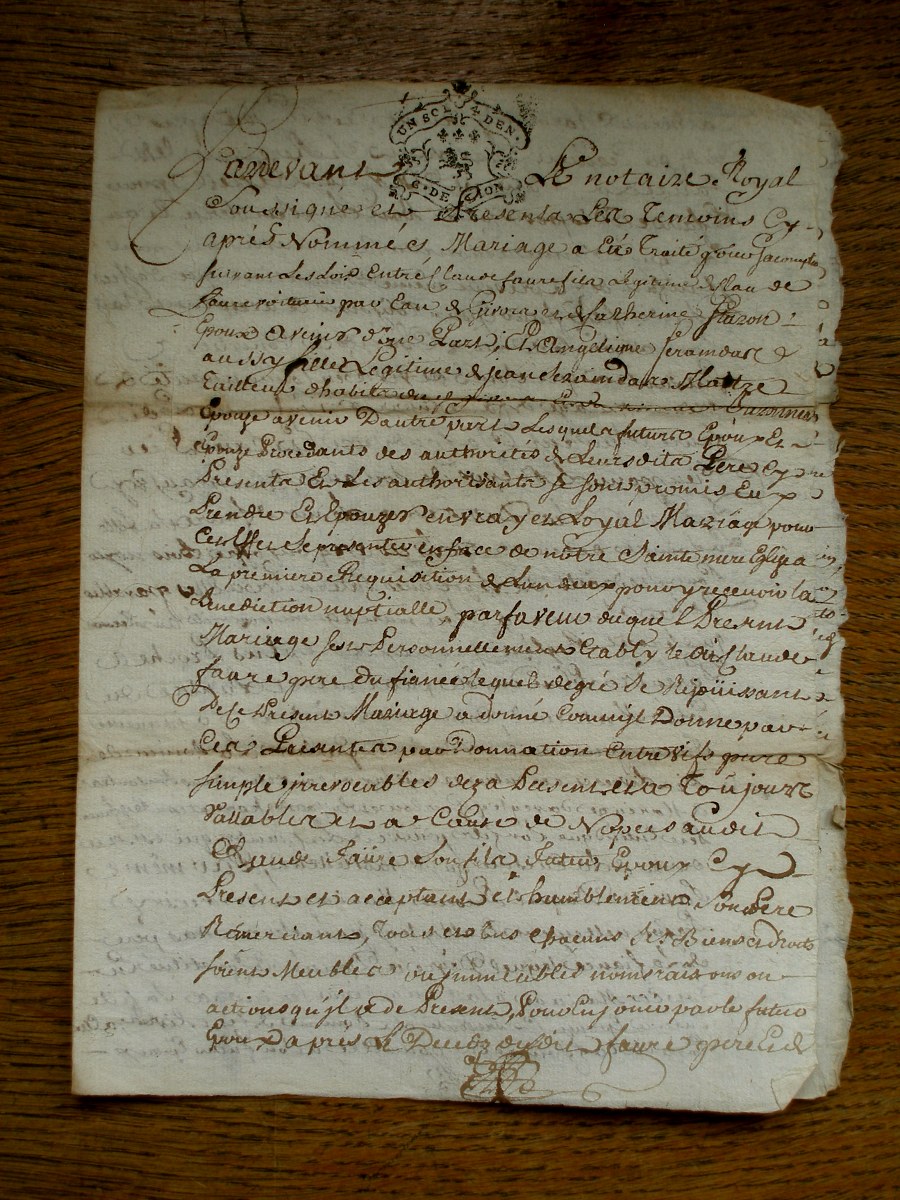 UN SOL DEN.
G. DE LYON
Pardevant Le notaire Royal
Soussigné et Presents Les Temoins Cy-
après Nommé es Mariage a Eté Traité
suivant Les Loix Entré Claude faure fils a Legitime de
faure voiturier par Eau de Givors et de Catherine
Epoux avenir d'une Part, Et Angelique
aussy fille Legitime de Jean Maitre
Tailleur d'habits
Epouze avenir Dautre part Lesquels futurs Epoux Et
Epouze Procedants des authorités de Leurs dits Pere Cy
Presents Et Les authorisants se sont promis Eux
Prendre Et Epouzer en vray et Loyal Mariage pour
Cet Effet Se presenter en face de notre Sainte mere Eglize a
La premiere Requisition de Lun deux pour y recevoir la
Benediction nuptialle par faveur duquel Present
Mariage sest Personnellement Etably le dit Claude
faure pere du fiancé lequel de gré Se Rejoüissant
De Ce Present Mariage a donné Comm'jl Donne par
Ces Presentes par Donnation Entre vifs pure
simple irrevocables deza Present et a Toujours
Vallables et a Cause de Nopces audit
Claude Faure Son fils Futur Epoux Cy
Present et acceptant et humblement Son Pere
Remerciant, Tous et uns chacuns Ses Biens et Droits
soient Meubles ou jmmeubles noms raisons ou
actions qu'jl a de Present, Pour En joüir par le futur
Epoux après Le Deced du dit faure pere Et